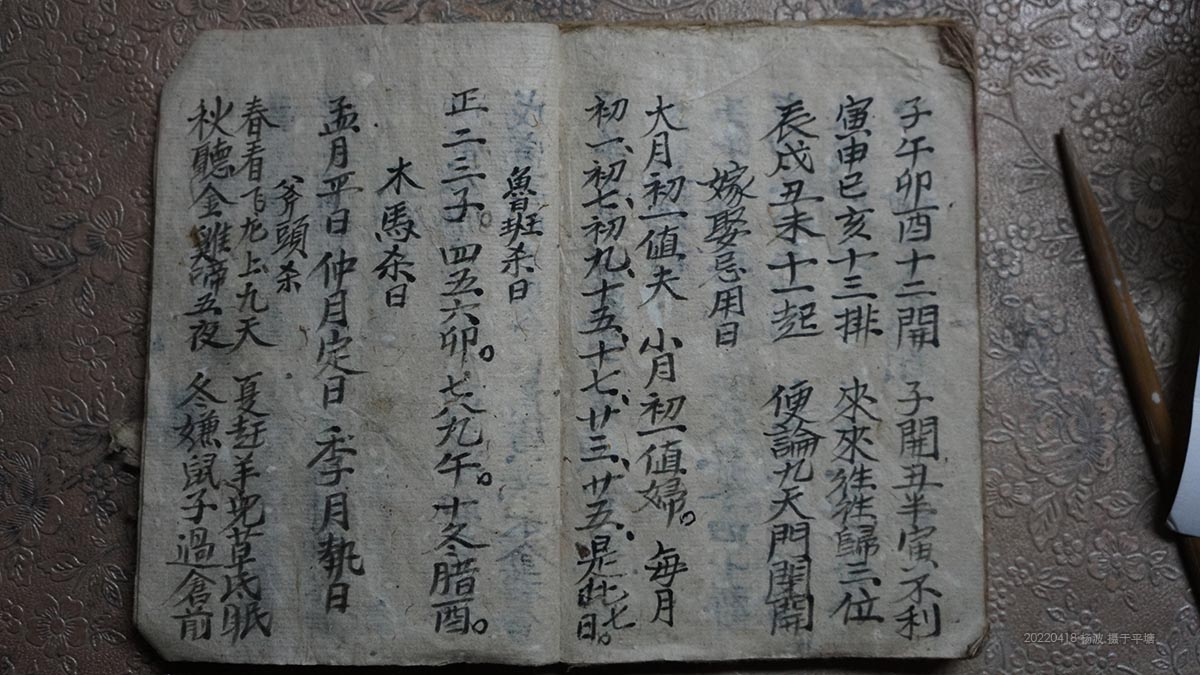 子午卯酉十二開　子開丑半寅不利
寅申巳亥十三排　來來往往歸三位
辰戌丑未十一起　便論九天門里開
嫁娶忌用日
大月初一值夫　小月初一值婦。每月
初一、初七、初九、十五、十七、廿三、廿五、是此七日。
魯班杀日
正二三子。四五六卯。七八九午。十冬腊酉。
木馬杀日
孟月平日　仲月定日　季月執日
斧頭杀
春看飞龙上九天　夏赶羊兒草底眠
秋聽金雞啼五夜　冬嫌鼠子過倉前
20220418 杨波.摄于平塘